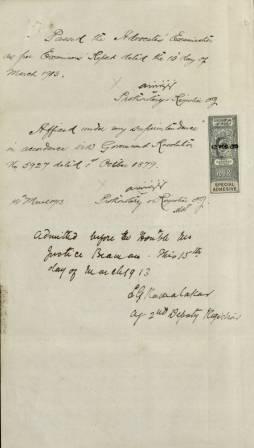 Passed the Advocates' Examination
as per Examiners Report dated the 10 day of
March 1913.
Prothonotary & Registrar
Affixed under my superintendence
in accordance with Government Resolution
No 5927 dated 1st October 1879.
Prothonotary & Registrar
SPECIAL
ADHESIVE
Admitted before the Honble Mr
Justice Beaman. This 15th
day of March 1913
Ag 2nd Deputy Registrar